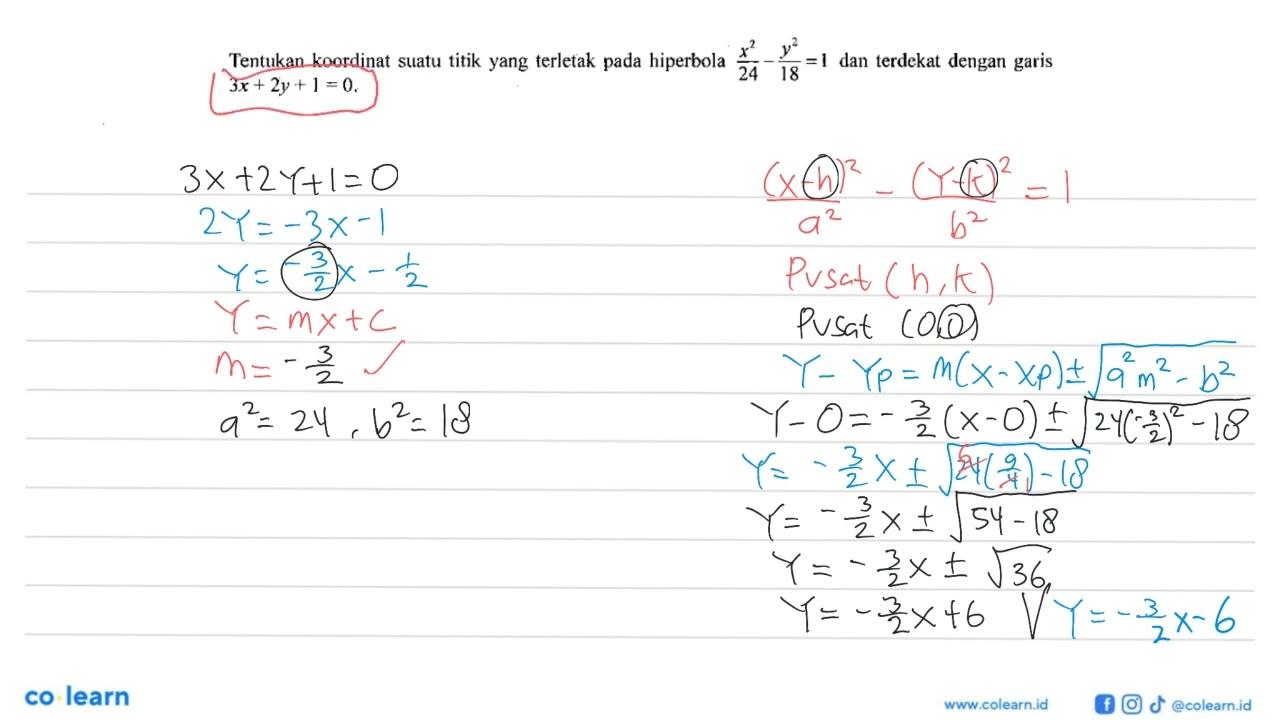 Tentukan koordinat suatu titik yang terletak pada hiperbola x²/24 - y²/18 = 1 dan terdekat dengan garis
3x + 2y + 1 = 0.
3x + 2y + 1 = 0
2y = -3x - 1
y = -3/2 x - 1/2
y = mx + c
m = -3/2 ✓
a² = 24, b² = 18
(x-h)²/a² - (y-k)²/b² = 1
Pusat (h, k)
Pusat (0,0)
y - yp = m(x - xp) ± √(a²m² - b²)
y - 0 = -3/2 (x - 0) ± √(24(-3/2)² - 18)
y = -3/2 x ± √(24(9/4) - 18)
y = -3/2 x ± √(54 - 18)
y = -3/2 x ± √36
y = -3/2 x + 6 V y = -3/2 x - 6
co learn
www.colearn.id
@colearn.id